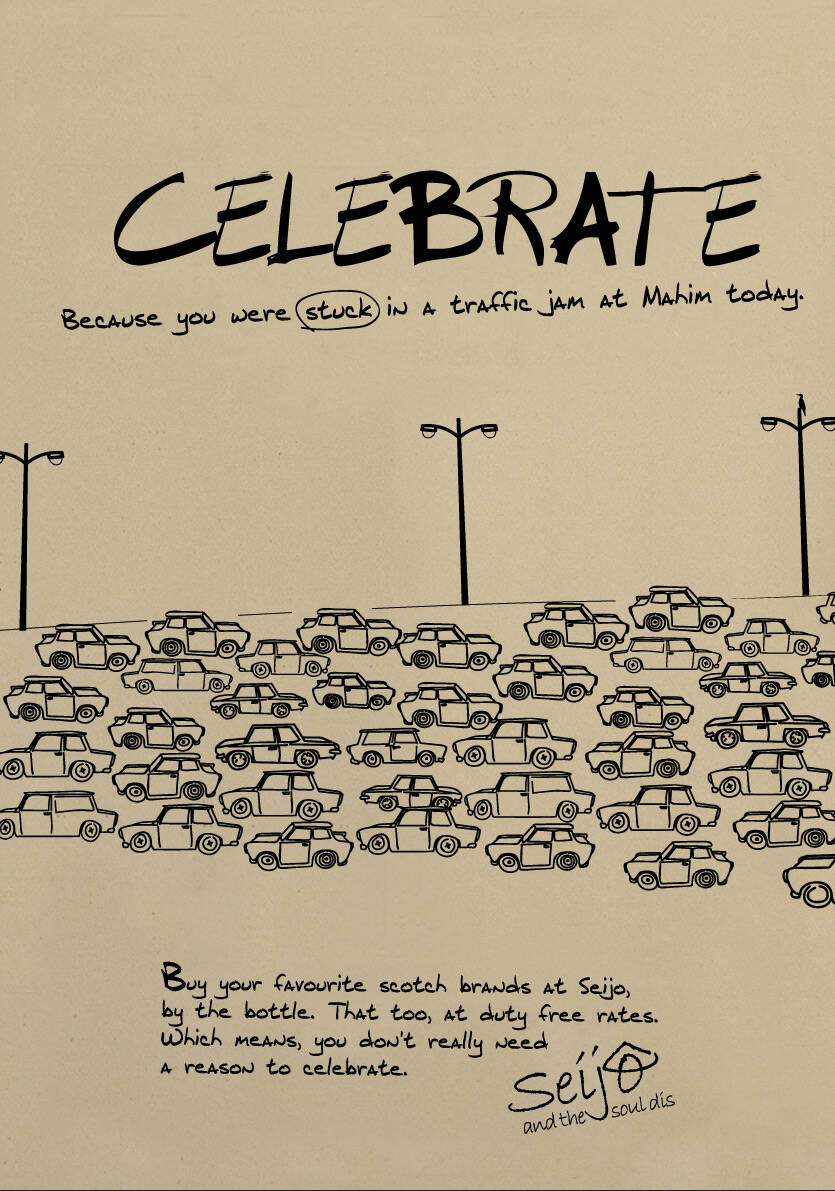 CELEBRATE
Because you were stuck in a traffic jam at Mahim today.
Buy your favourite scotch brands at Seijo,
by the bottle. That too, at duty free rates.
Which means, you don't really need
a reason to celebrate.
Seijo
and the soul dis